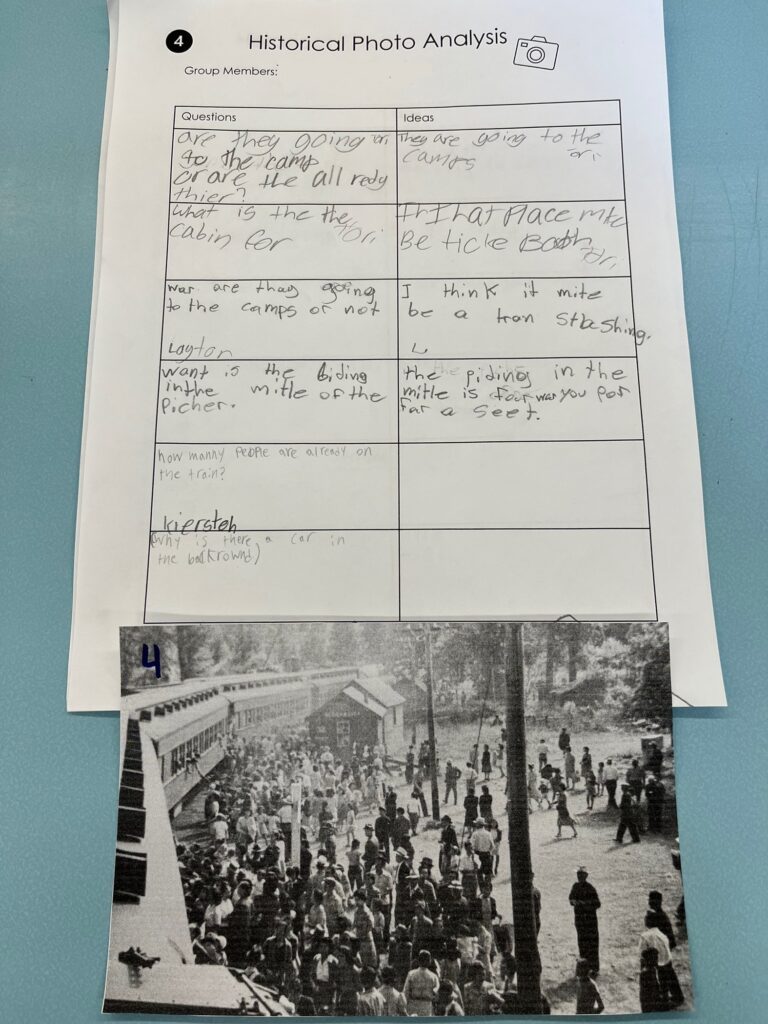 4
Historical Photo Analysis
Group Members:
Questions
Ideas
are they going ori
to the camp
or are the all redy
thier?
They are going to the
camps ori
What is the the
cabin for Tori
Be ticke Booth
Tori
war are thay going
to the camps or not
Layton
I think it mite
be a tran
L
want is the biding
in the mitle of the
Picher.
the piding in the
mitle is four war you
far a seet.
how manny people are already on
the train?
kiersteh
(why is there a car in
the backrownd)
4